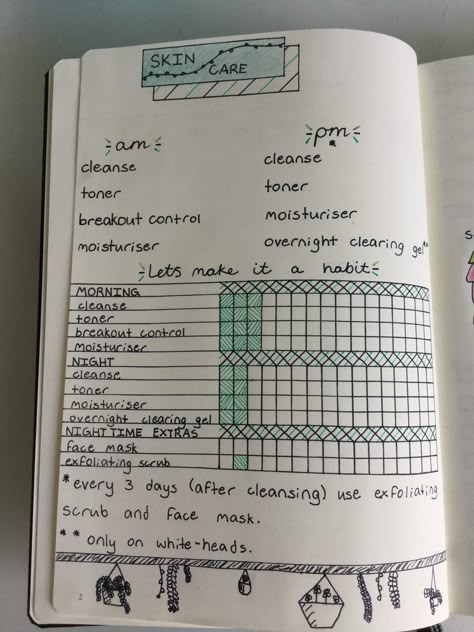 SKIN
CARE
am
pm
*
cleanse
toner
breakout control
moisturiser
cleanse
toner
moisturiser
overnight clearing gel**
Lets make it a habit
MORNING
cleanse
toner
breakout control
moisturiser
NIGHT
cleanse
toner
moisturiser
overnight clearing gel
NIGHT TIME EXTRAS
face mask
exfoliating scrub
*every 3 days (after cleansing) use exfoliating
scrub and face mask.
** only on white-heads.
2